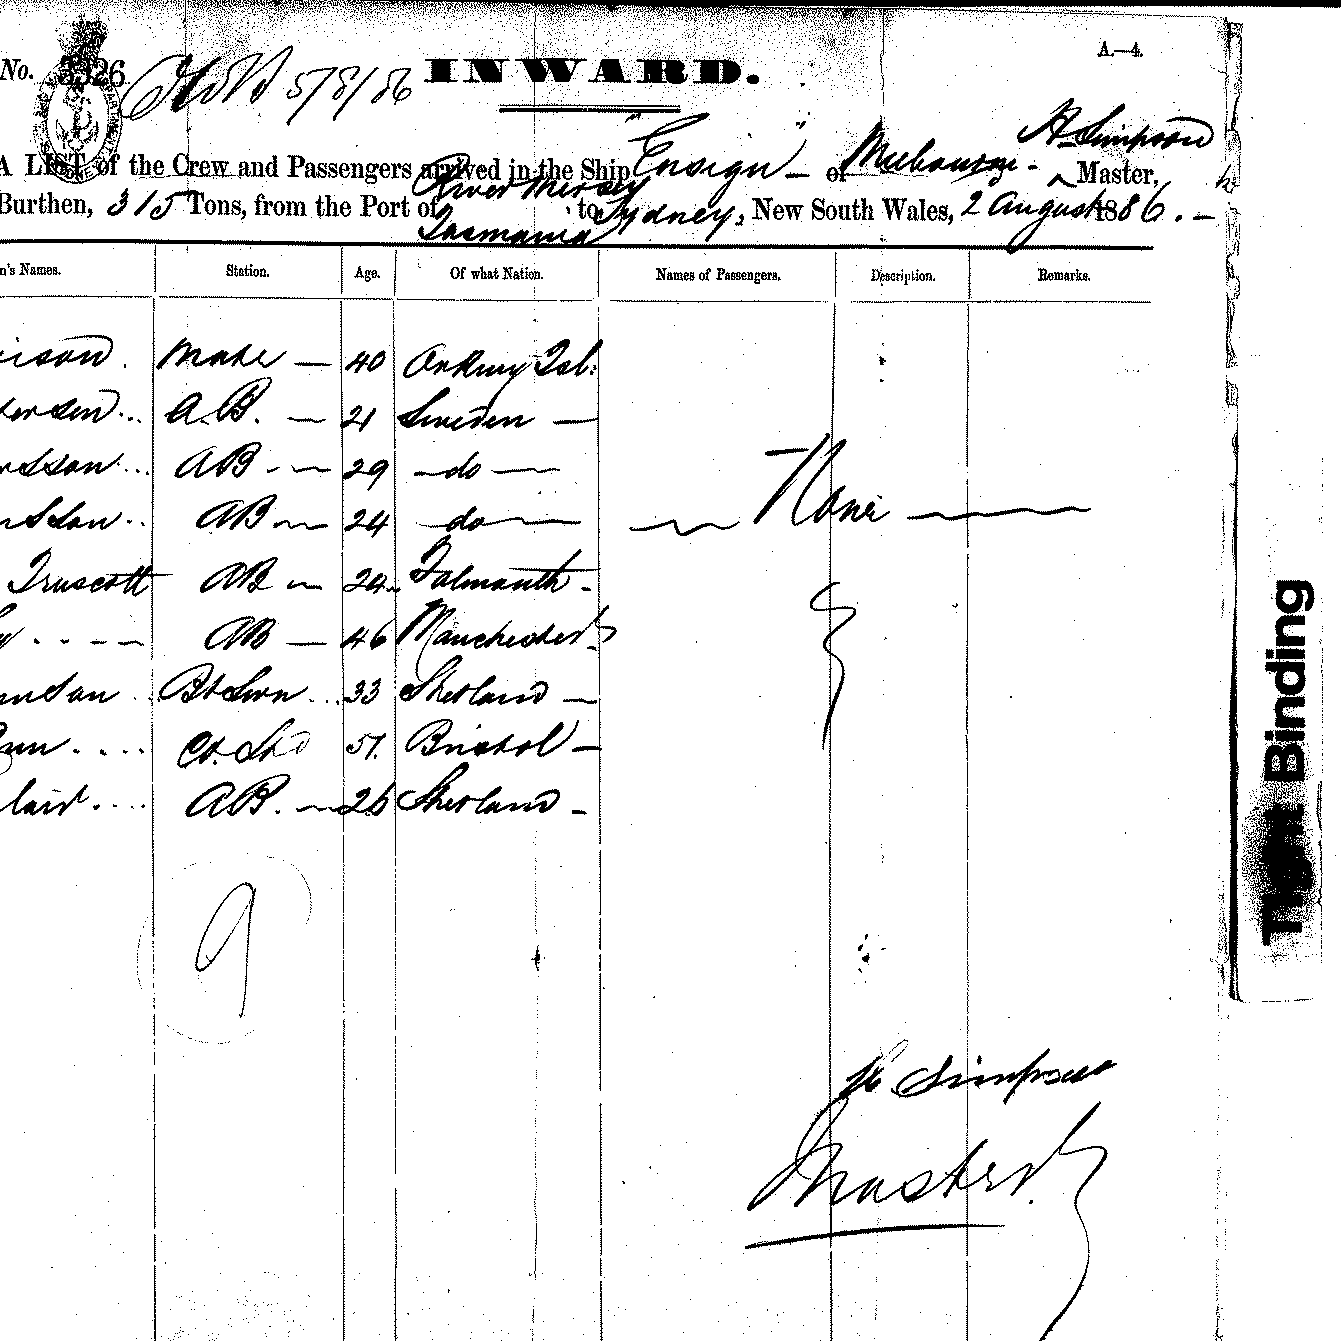 A.—4.
No. 3326 5/8/86 INWARD.
A LIST of the Crew and Passengers arrived in the Ship "Ensign" of Melbourne - H Simpson Master,
Burthen, 315 Tons, from the Port of River Mersey Tasmania to Sydney, New South Wales, 2 August 1886. -
n's Names. Station. Age. Of what Nation. Names of Passengers. Description. Remarks.
Mate — 40 Orkney Isl:
A.B. — 21 Sweden —
AB - — 29 - do —
AB — 24 - do —
None
Truscott AB — 24 Falmouth -
AB — 46 Manchester
33 Shetland —
51. Bristol —
AB. — 26 Shetland -
9
H Simpson
Master
Tight Binding